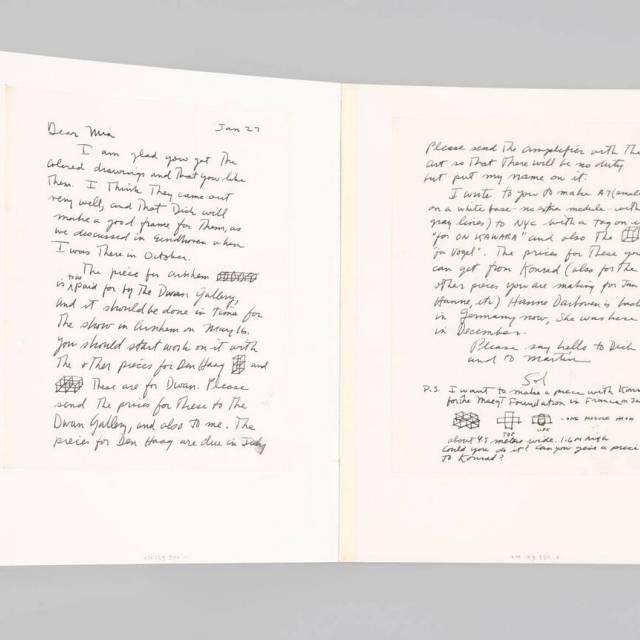 Dear Mia Jan 27
I am glad you got the
colored drawings and that you like
them. I think they came out
very well, and that Dick will
make a good frame for them, as
we discussed in Eindhoven when
I was there in October.
The piece for Arnhem
is paid for by the Dwan Gallery,
and it should be done in time for
the show in Arnhem on May 16.
You should start work on it with
the other pieces for Den Haag and
These are for Dwan. Please
send the prices for these to the
Dwan Gallery, and also to me. The
pieces for Den Haag are due in July
Please send the amplifier with the
art so that there will be no duty
but put my name on it.
I write to you to make A7 (small
on a white base - no extra module - with
gray lines) to NYC with a tag on it
"for ON KAWARA" and also the
"for Vogel". The prices for these you
can get from Konrad (also for the
other pieces you are making for Jan
Hanne, etc) Hanne Darboven is back
in Germany now, She was here
in December.
Please say hello to Dick
and to Martin
Sol
P.S. I want to make a piece with Konrad
for the Maegt Foundation in France in
- ONE MODULE HIGH
TOP
about 4.5 meters wide. 1.60m high
Could you do it? Can you give a price
to Konrad?